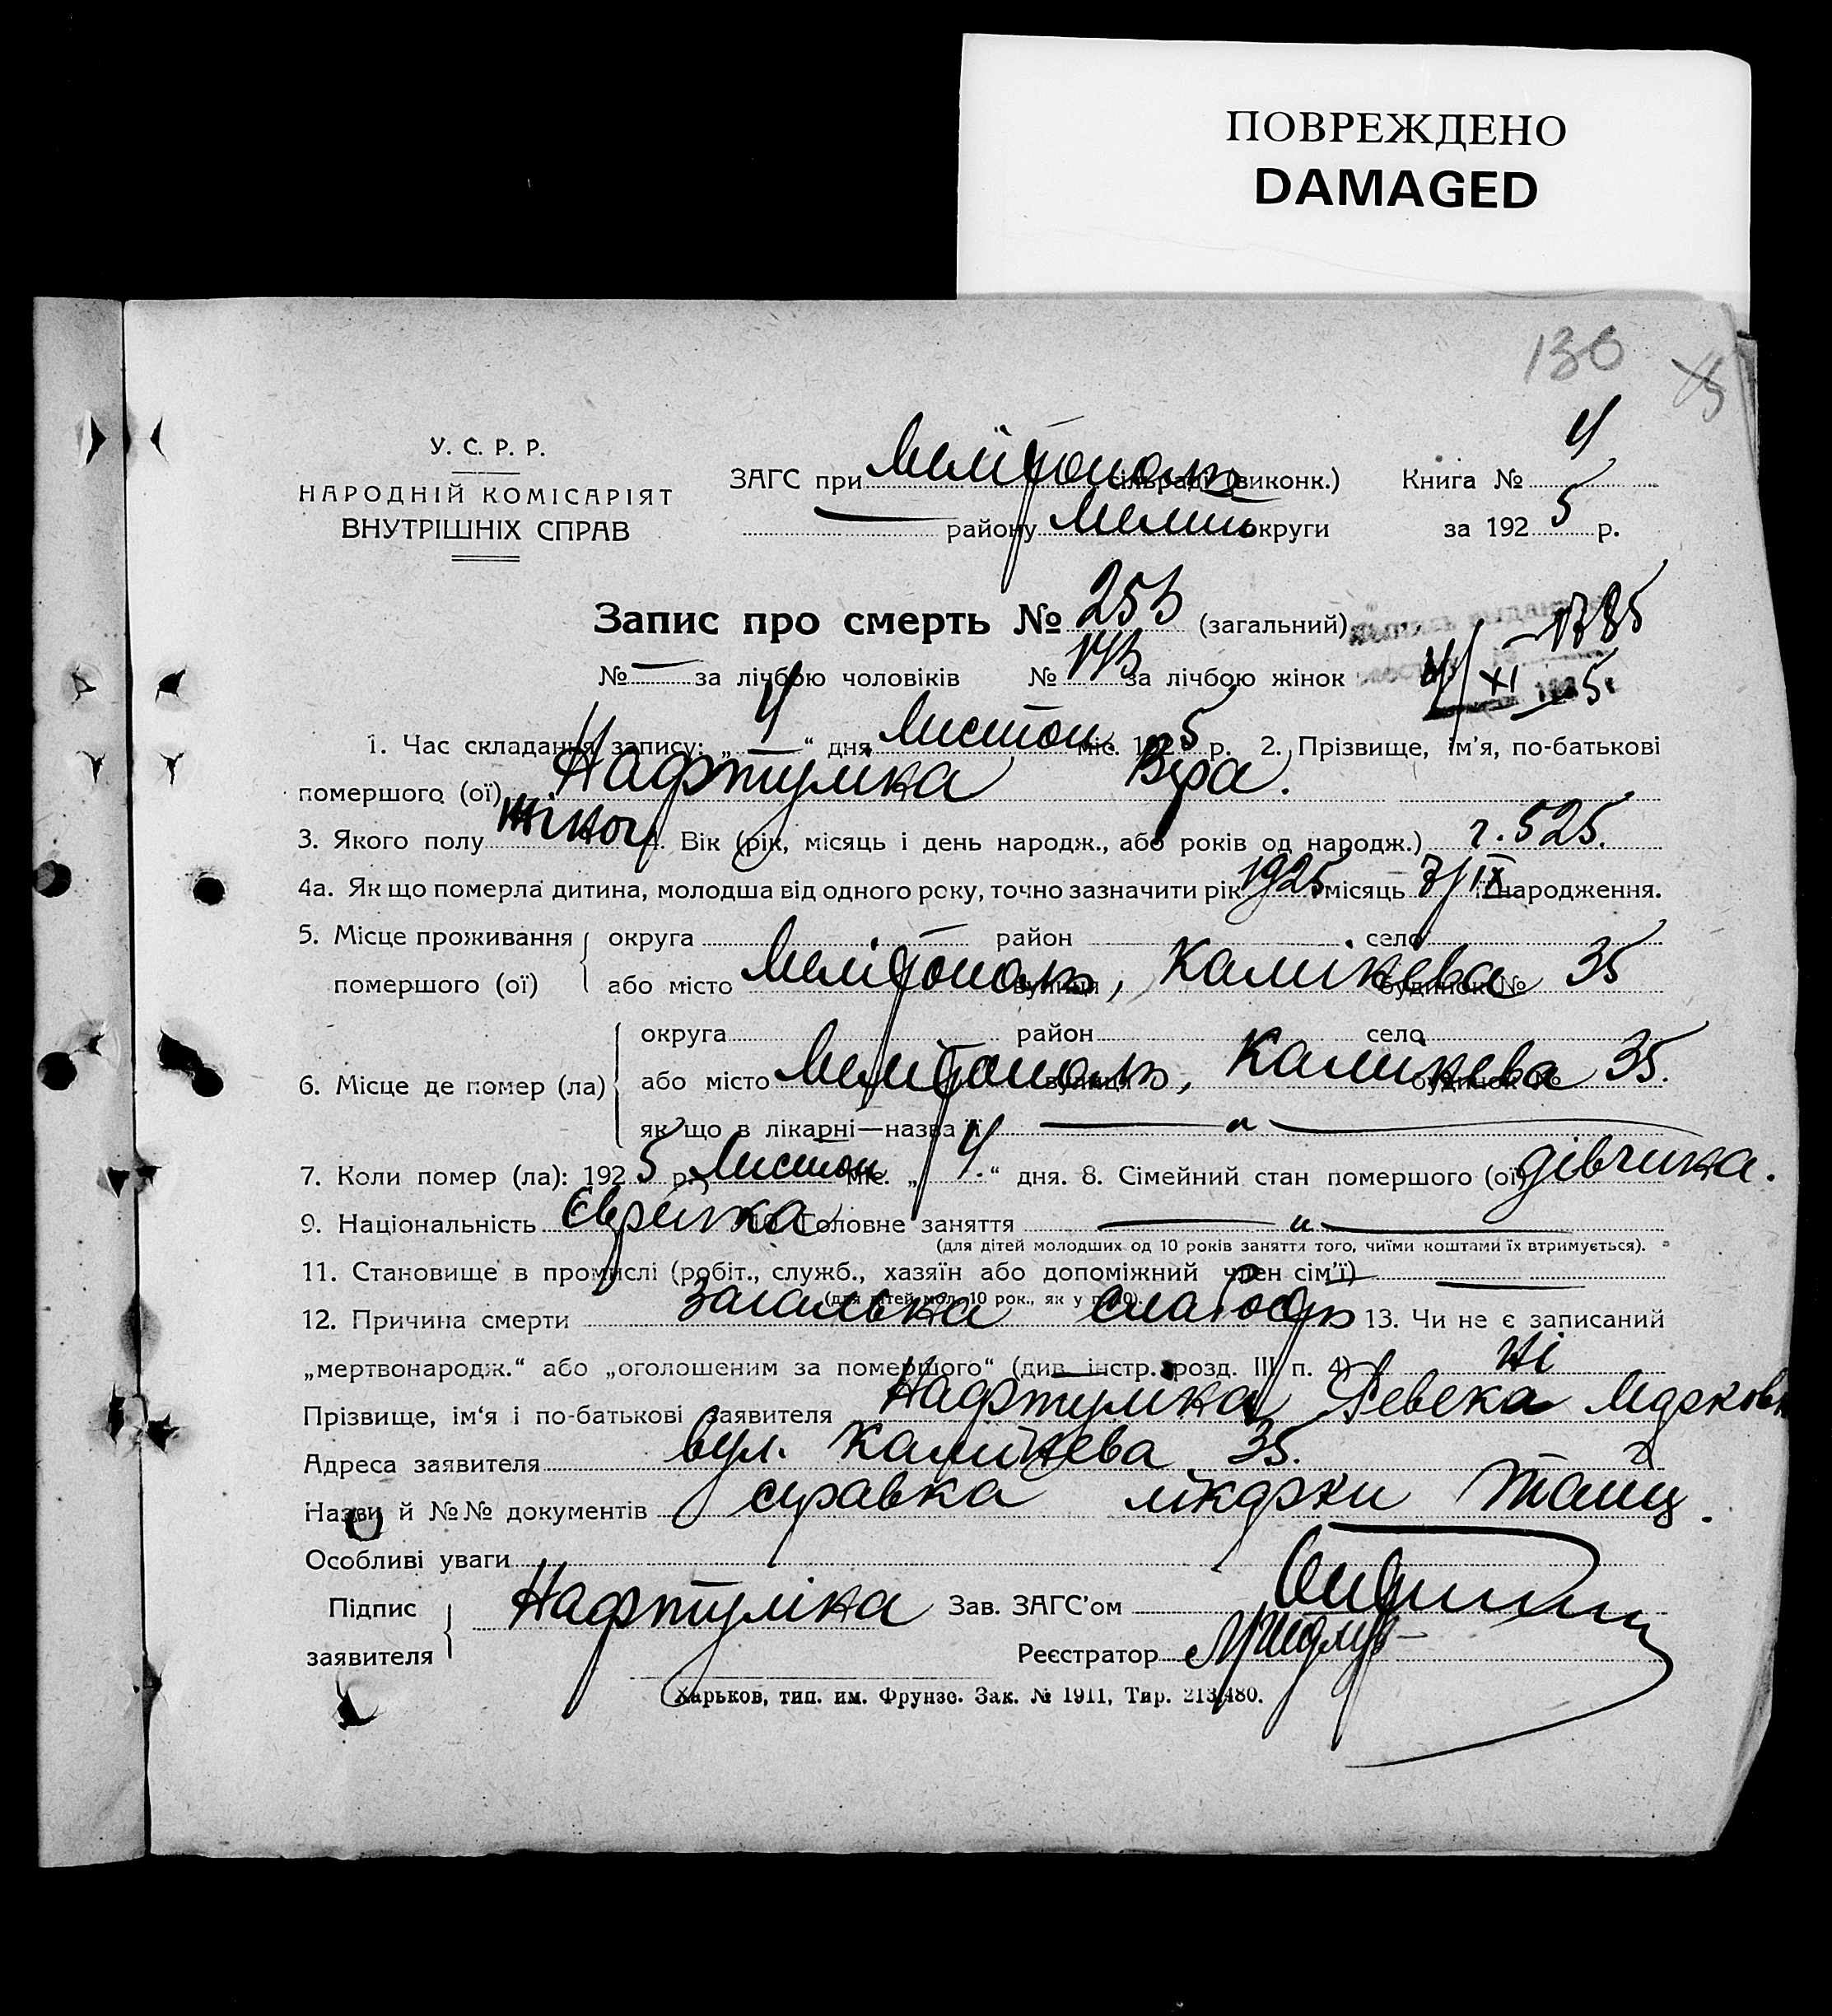 ПОВРЕЖДЕНО
DAMAGED
136
У. С. Р. Р.
НАРОДНІЙ КОМІСАРІЯТ
ВНУТРІШНІХ СПРАВ
ЗАГС при Мелітополь сільраді (виконк.) Книга № 4
району Мелит округи за 1925 р.
Запис про смерть № 253 (загальний)
№ — за лічбою чоловіків № 113 за лічбою жінок
4/XI 5
1. Час складання запису: „ 4 “ дня Листоп. міс. 1925 р. 2. Прізвище, ім'я, по-батькові
помершого (ої) Нафтуліна Віра.
3. Якого полу жіноч 4. Вік (рік, місяць і день народж., або років од народж.) г. 525.
4а. Як що померла дитина, молодша від одного року, точно зазначити рік 1925 місяць 7/IX її народження.
5. Місце проживання помершого (ої) округа район село
або місто Мелітополь, вулиця Калінева будинок № 35
6. Місце де помер (ла) округа район село
або місто Мелітополь, вулиця Калінева будинок № 35.
як що в лікарні—назва її — „ —
7. Коли помер (ла): 1925 р. Листоп міс. „ 4. “ дня. 8. Сімейний стан помершого (ої) дівчина.
9. Національність Єврейка 10. Головне заняття — „ —
(для дітей молодших од 10 років заняття того, чиїми коштами їх втримується).
11. Становище в промислі (робіт., служб., хазяїн або допоміжний член сім'ї) —
(для дітей мол. 10 рок., як у п. 10).
12. Причина смерти Загальна слабость 13. Чи не є записаний
„мертвонародж.“ або „оголошеним за помершого“ (див. інстр. розд. III п. 4) Ні
Прізвище, ім'я і по-батькові заявителя Нафтуліна Ревека Марковн
Адреса заявителя вул. Калінева 35.
Назви й №№ документів справка лікарки Танц.
Особливі уваги
Підпис заявителя Нафтуліна Зав. ЗАГС'ом
Реєстратор
Харьков, тип. им. Фрунзе. Зак. № 1911, Тир. 213,480.